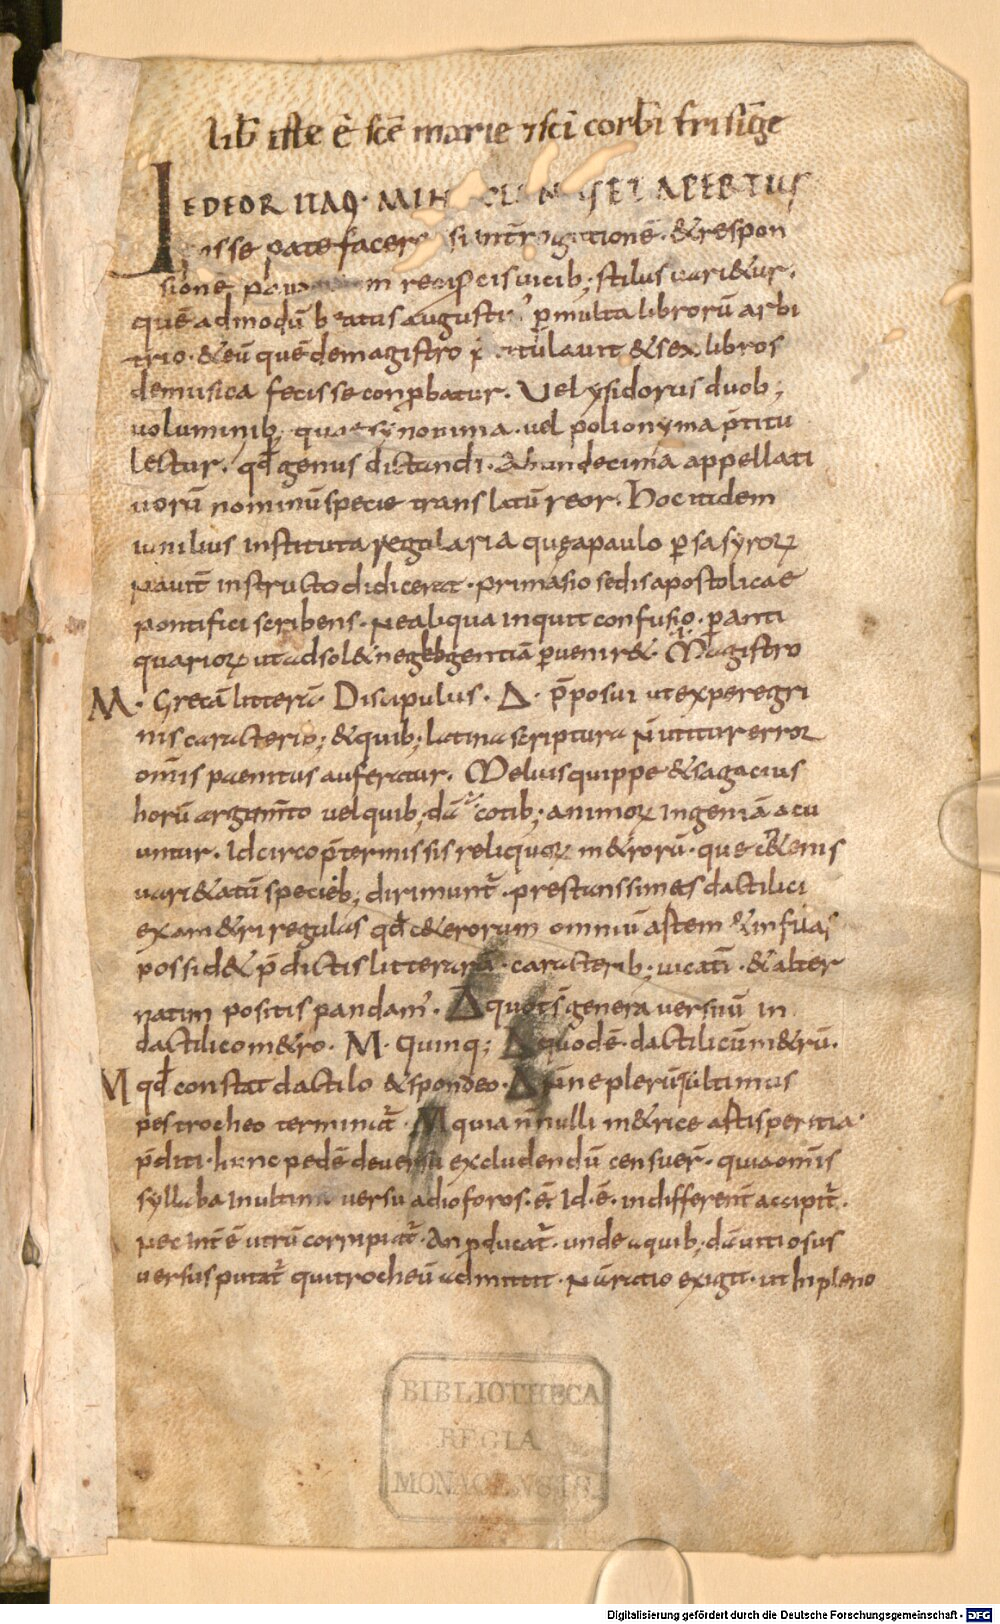 lib̄ iste ē scē marie ⁊ sc̄i corb̄i frisiḡe
EDEOR ITAQ· APERTUS
sse patefacere si int̄rogationē· & respon
sionē m recip̄cis uicib; stilus uari&ur·
quē admodū beatus augusti p̄ multa librorū arbi
trio· & eū quē de magistro titulauit & sex libros
de musica fecisse conp̄batur· Vel ysidorus duob;
uoluminib; quae synonima· uel polionyma p̄titu
lectur· qd̄ genus dictandi· Ab undecima appellati
uorū nominū specie translatū reor· Hoc itidem
iunilius instituta regularia quę a paulo p̄sa syroꝝ
nauit̄ instructo didicerat· primasio sedis apostolicae
pontifici scribens· Ne aliqua inquit confusio· p̄ anti
quarioꝝ ut adsol& neglegentiā p̄uenir&· Magistro
M· Grecā litterā· Discipulus· Δ· p̄posui ut ex peregri
nis caracterib; & quib; latina scriptura n̄ utitur erroꝝ
om̄is paenitus auferatur· Melius quippe & sagacius
horū argum̄to uel quib; dā cotib; animoꝝ ingenia acu
untur· Idcirco p̄termissis reliquoꝝ m&rorū· que c&enis
uari&atū specieb; dirimunt̄· prestanssimas dactilici
exam&ri regulas qd̄ c&erorum omniū astem & infulas
possid& p̄dictis litterarū· caracterib; uicatī· & alter
natim positis pandam̄· Δ quot s̄ genera versuū in
dactilico m&ro· M· Quinq; Δ quod ē· dactilicū m&rū·
M qd̄ constat dactilo & spondeo· Δ cūne plerūq ultimus
pes trocheo terminat̄· M quia n̄nulli m&rice artis peritia
p̄diti· hunc pedē de uersu excludendū censuer̄· quia om̄is
syllaba in ultimo versu adioforos· ē· Id· ē· indifferent̄ accipit̄·
nec int̄ ē utrū corripiat̄· An p̄ducat̄· unde a quib; dā uitiosus
uersus putat̄ qui trocheū admittit· Nā ratio exigit· ut hi pleno
BIBLIOTHECA
REGIA
MONACENSIS
Digitalisierung gefördert durch die Deutsche Forschungsgemeinschaft - DFG